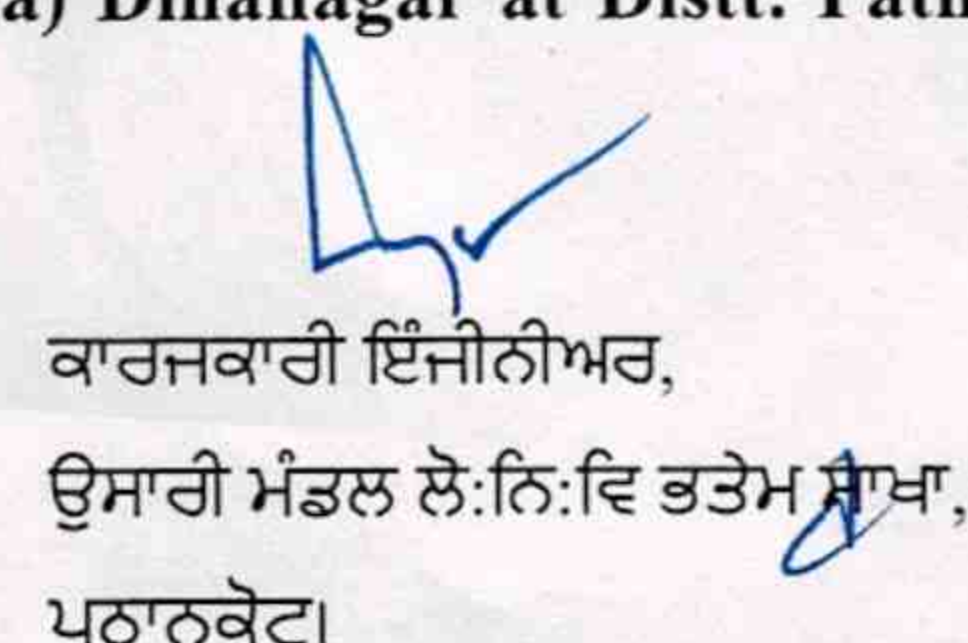 a) Dinanagar at Distt. Path
ਕਾਰਜਕਾਰੀ ਇੰਜੀਨੀਅਰ,
ਉਸਾਰੀ ਮੰਡਲ ਲੋ:ਨਿ:ਵਿ ਭਤੇਮ ਸ਼ਾਖਾ,
ਪਠਾਨਕੋਟ।